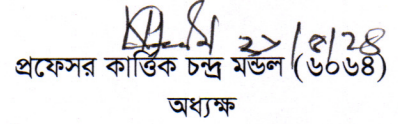 প্রফেসর কার্ত্তিক চন্দ্র মন্ডল (৬০৬৪)
অধ্যক্ষ